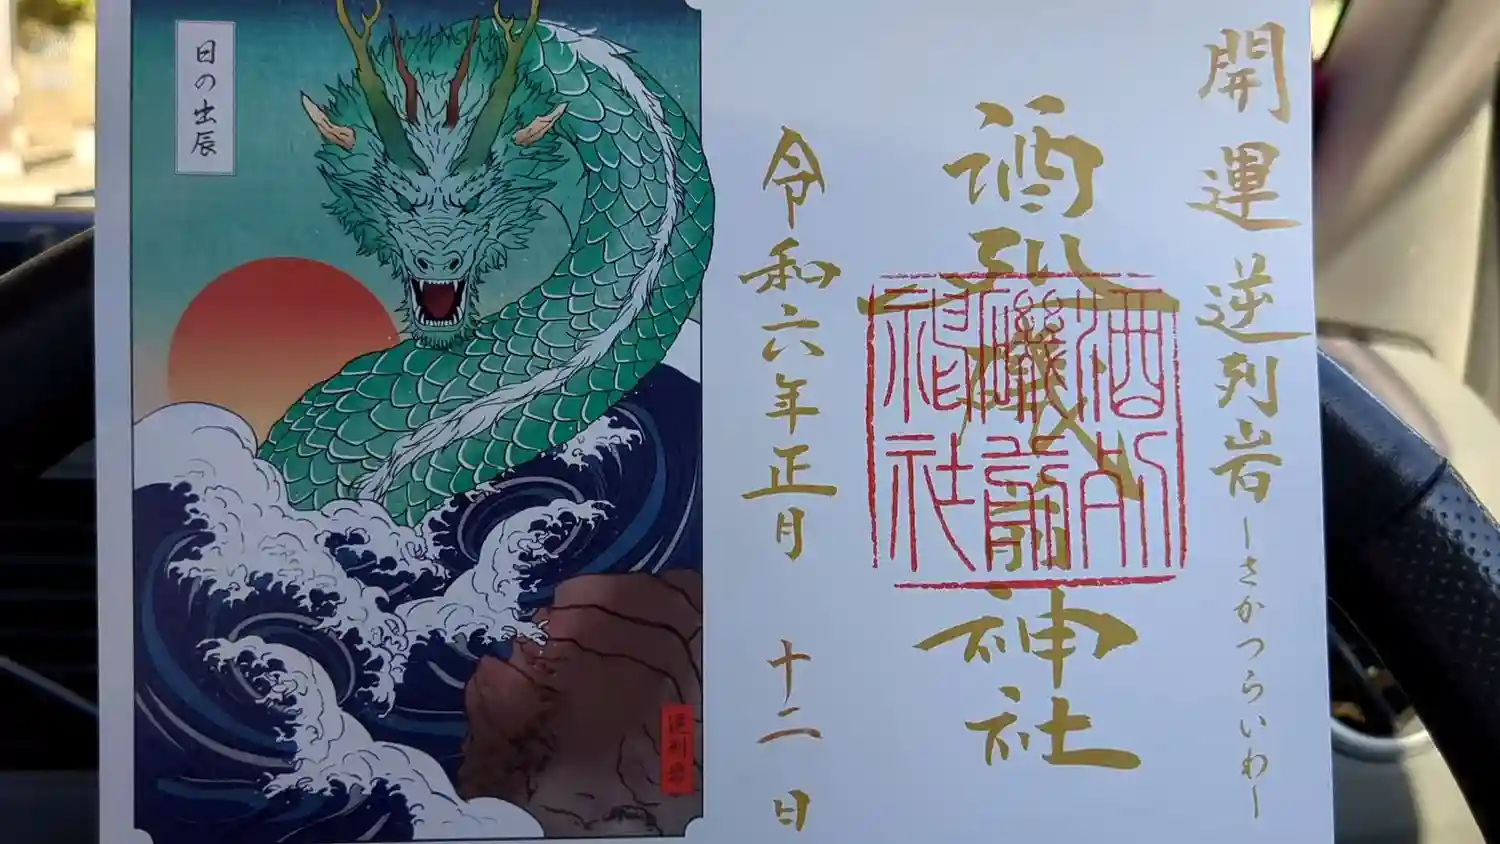 開運 逆列岩 ーさかつらいわー
酒列磯前神社
酒列
磯前
神社
令和六年正月 十二日
日の出辰
逆列岩